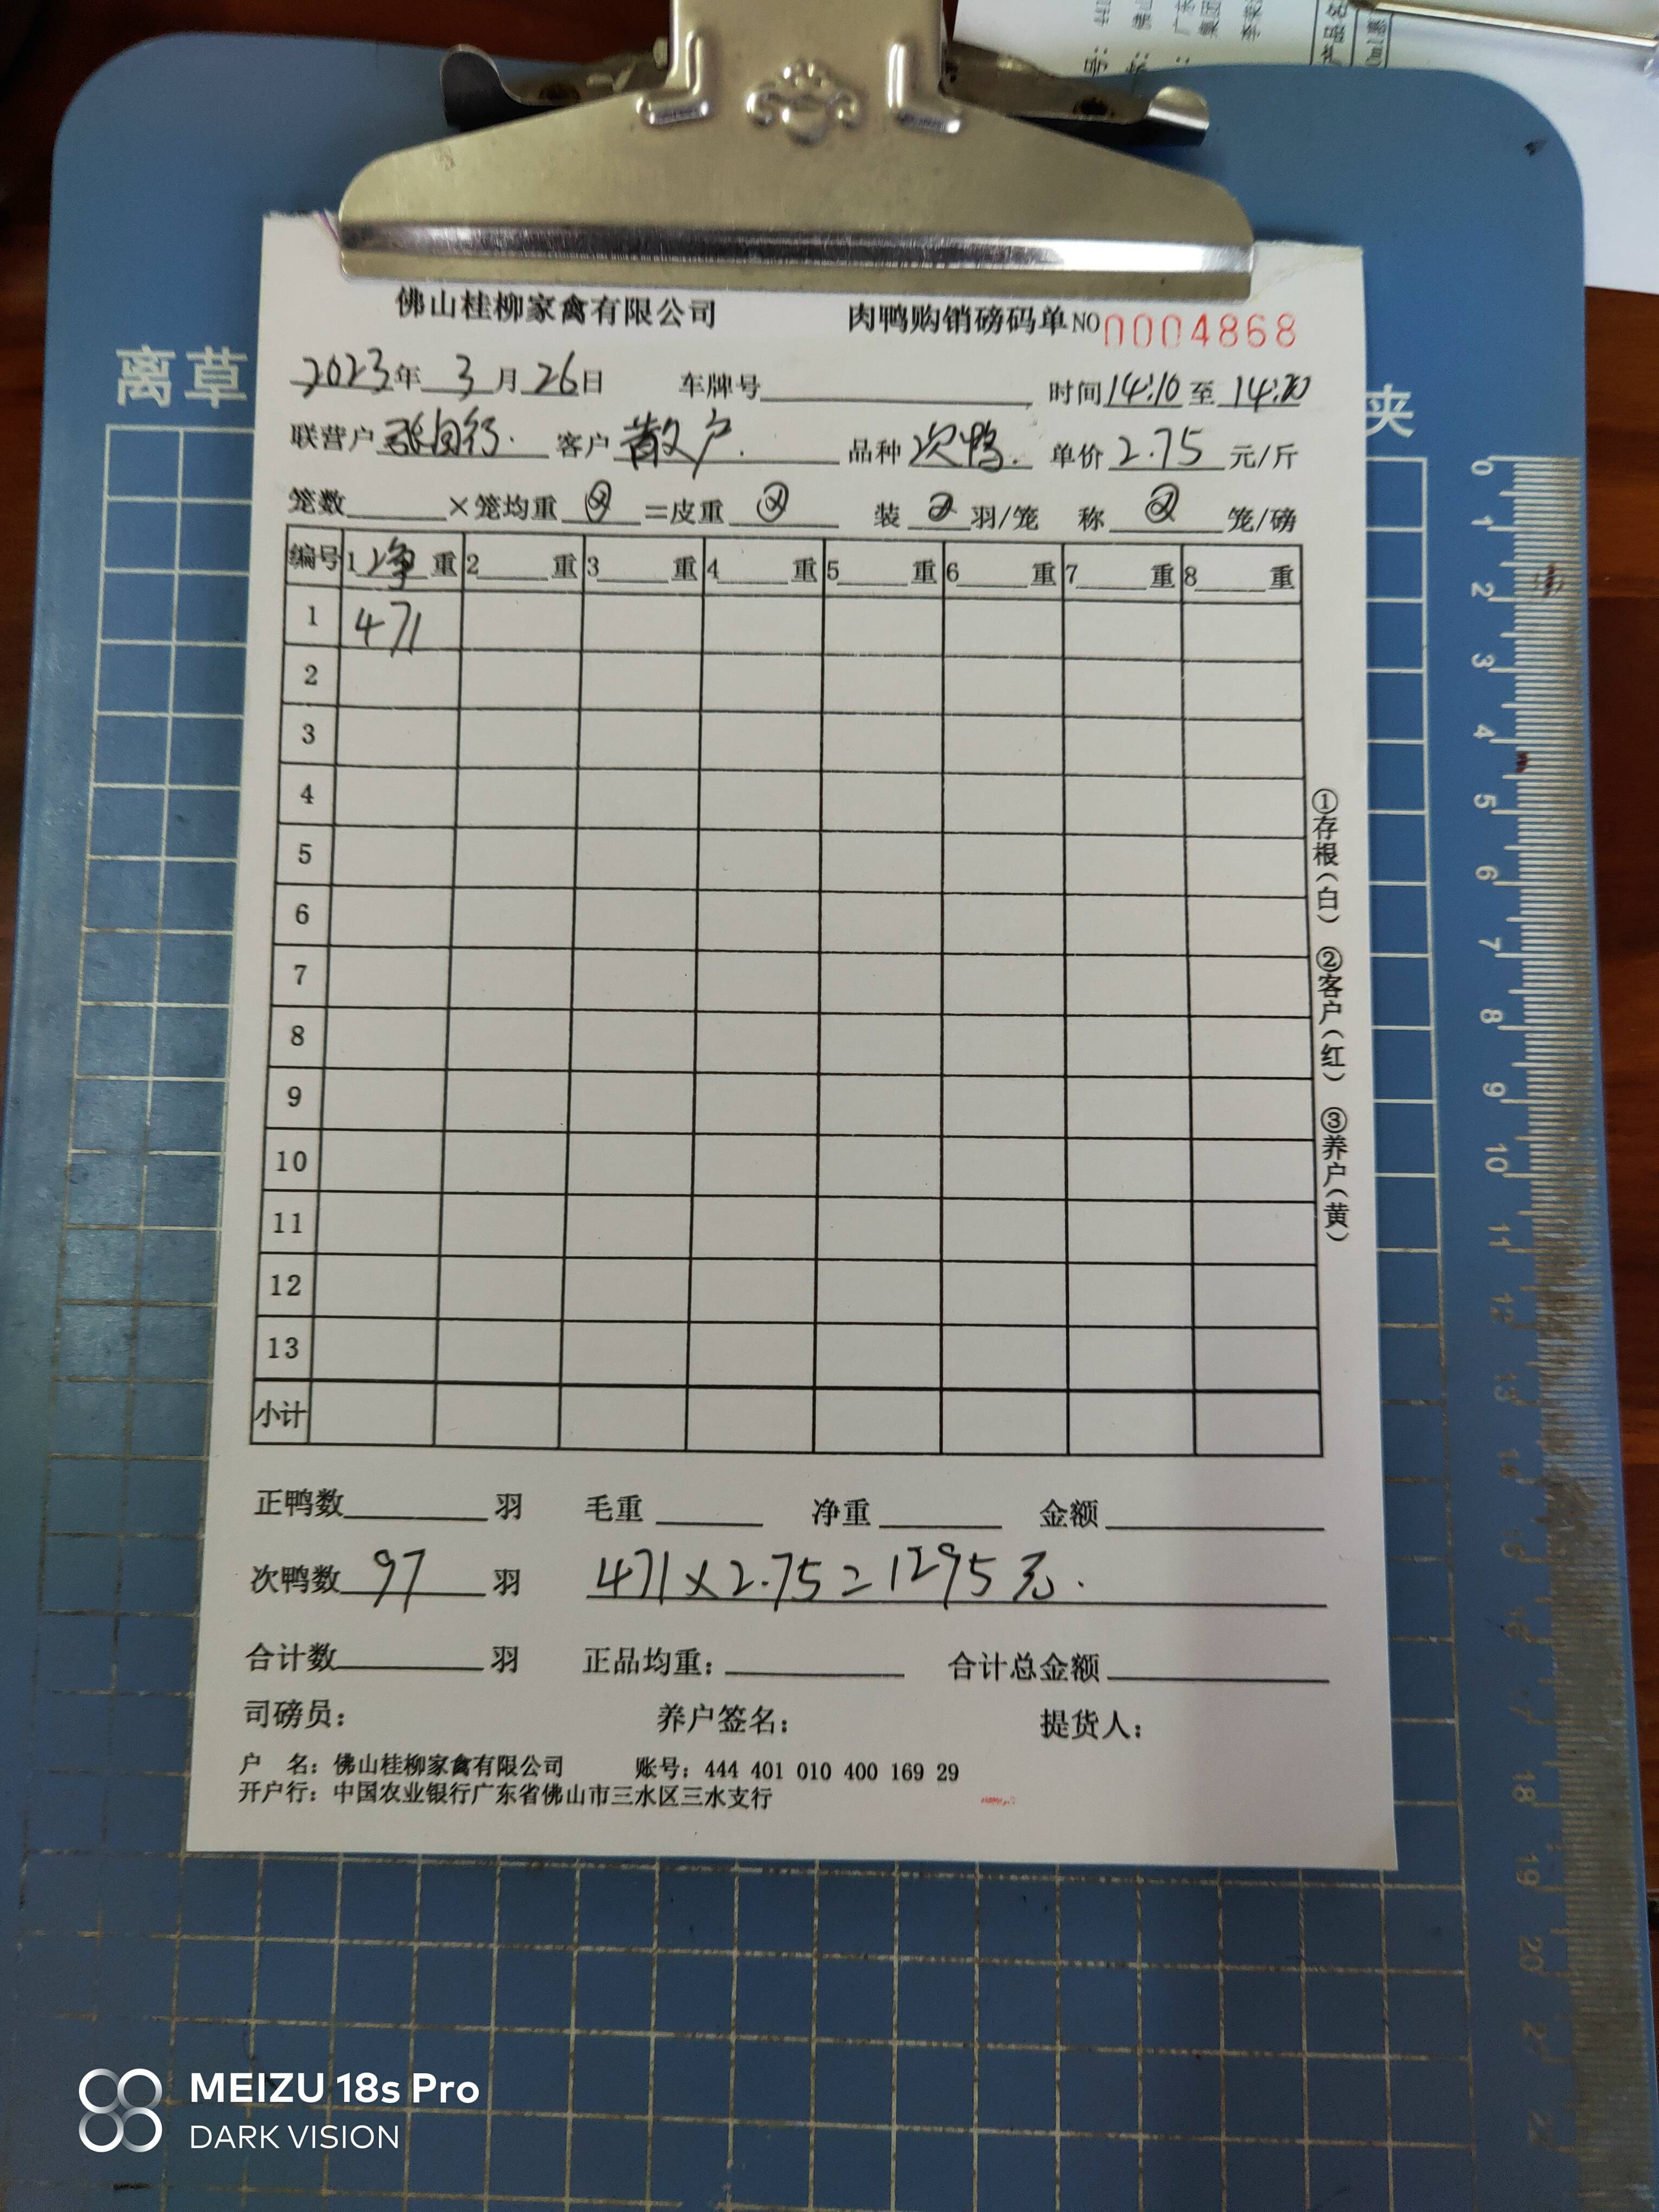 佛山桂柳家禽有限公司 肉鸭购销磅码单NO0004868
离草 夹
2023年 3 月 26日 车牌号 时间14:10 至 14:20
联营户 客户 散户. 品种 次鸭. 单价 2.75 元/斤
笼数 ×笼均重 =皮重 装 羽/笼 称 笼/磅
编号 1 净 重 2 重 3 重 4 重 5 重 6 重 7 重 8 重
1 471
2
3
4
5
6
7
8
9
10
11
12
13
小计
①存根(白) ②客户(红) ③养户(黄)
正鸭数 羽 毛重 净重 金额
次鸭数 97 羽 471×2.75=1295元.
合计数 羽 正品均重: 合计总金额
司磅员: 养户签名: 提货人:
户 名: 佛山桂柳家禽有限公司 账号: 444 401 010 400 169 29
开户行: 中国农业银行广东省佛山市三水区三水支行
0 1 2 3 4 5 6 7 8 9 10 11 12 13 14 15 16 17 18 19 20 21 22
MEIZU 18s Pro
DARK VISION